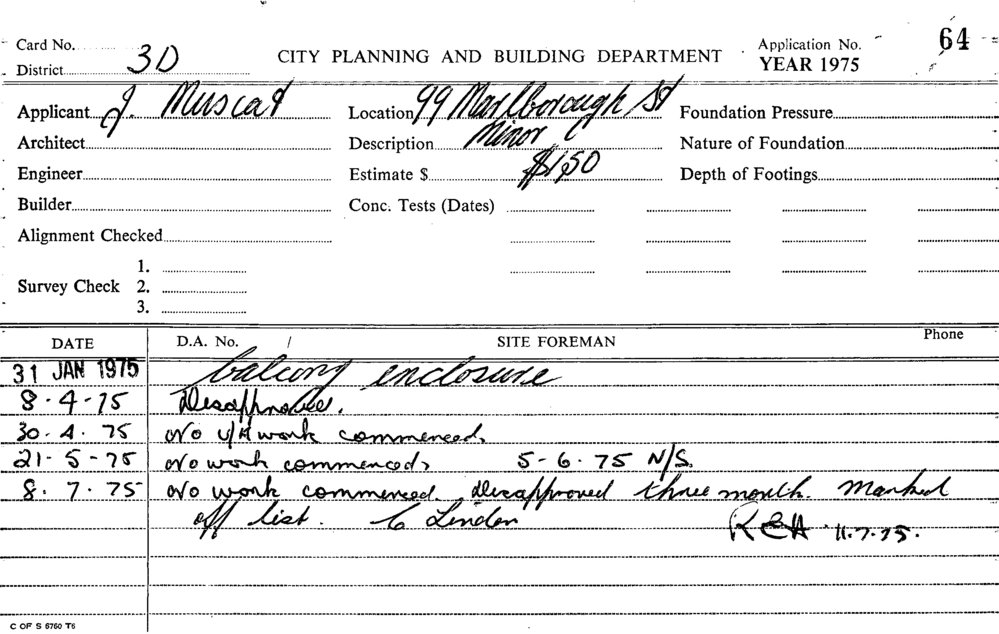 Card No. Application No. 64
District 3D CITY PLANNING AND BUILDING DEPARTMENT YEAR 1975
Applicant J. Muscat Location 99 Marlborough St Foundation Pressure
Architect Description Minor C Nature of Foundation
Engineer Estimate $ $150 Depth of Footings
Builder Conc. Tests (Dates)
Alignment Checked
1.
Survey Check 2.
3.
DATE D.A. No. / SITE FOREMAN Phone
31 JAN 1975 balcony enclosure
8-4-75 Disapproved.
30.4.75 No work commenced.
21-5-75 No work commenced, 5-6-75 N/S.
8.7.75 No work commenced. Disapproved three month. Marked
off list. C Linden REH 11.7.75.
C OF S 6760 T6